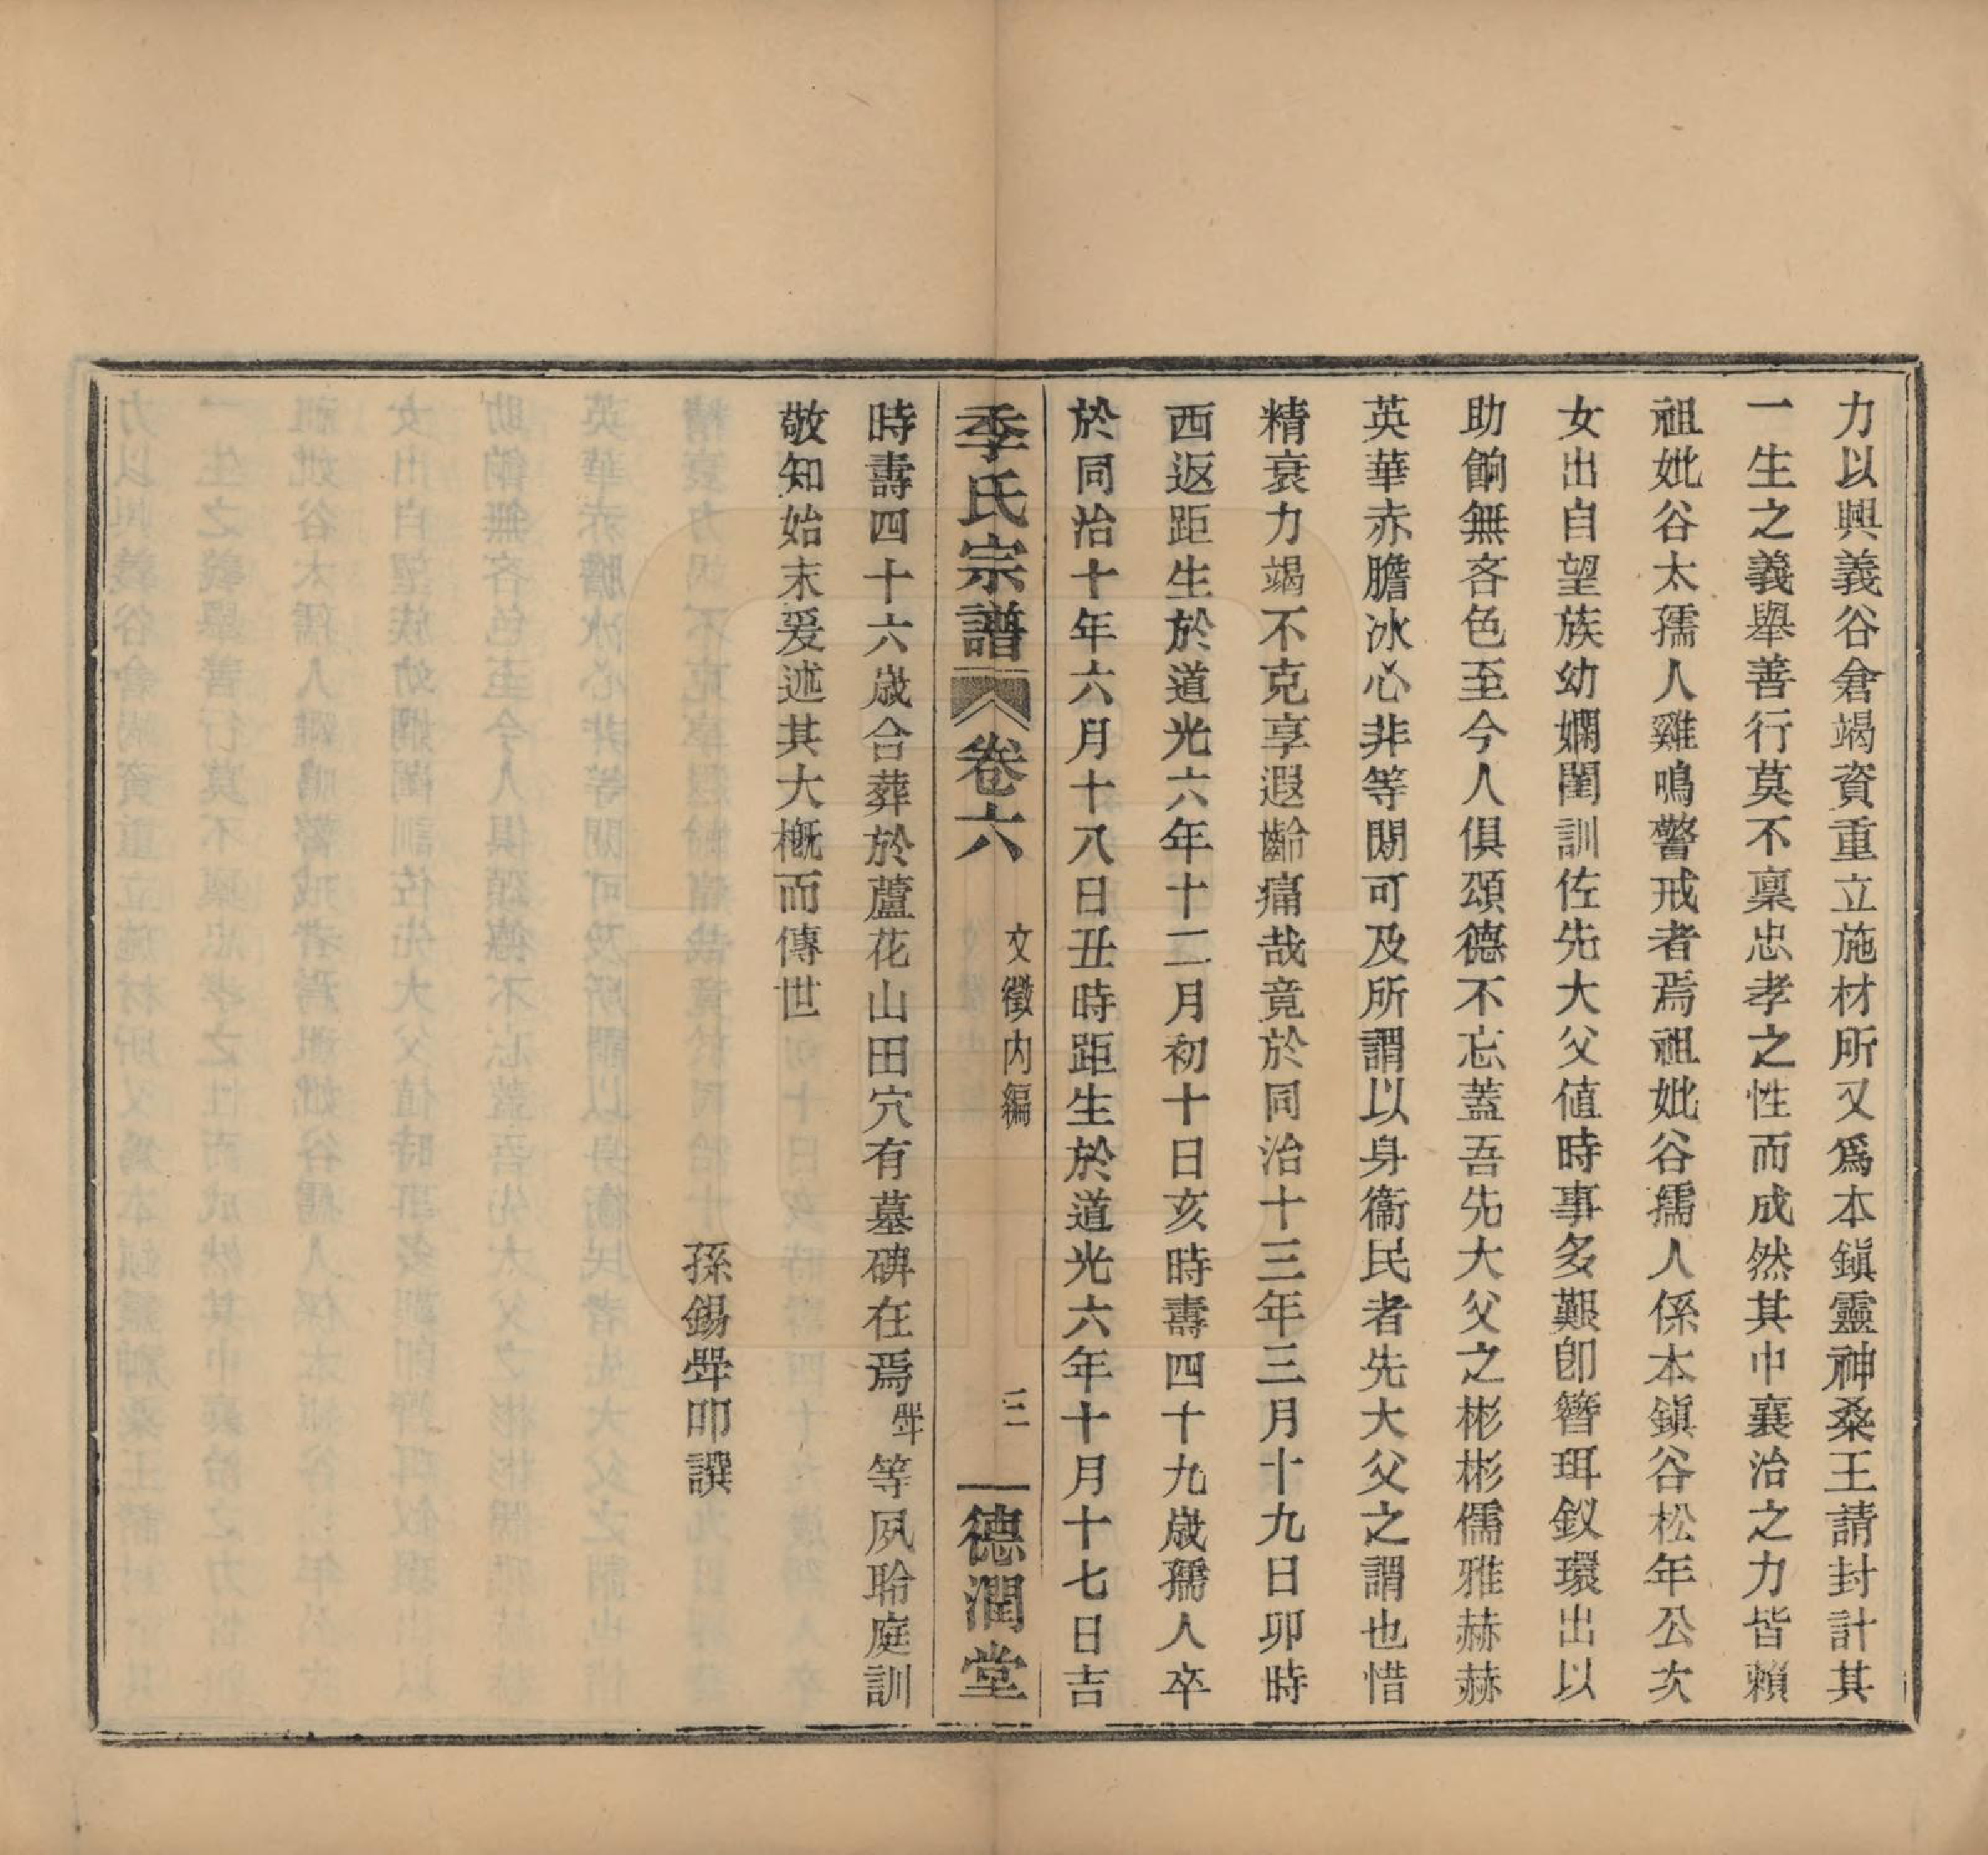 力以興義谷倉竭資重立施材所又爲本鎭靈神桑王請封計其
一生之義舉善行莫不禀忠孝之性而成然其中襄治之力皆賴
祖妣谷太孺人雞鳴警戒者焉祖妣谷孺人係本鎭谷松年公次
女出自望族幼嫻閨訓佐先大父値時事多艱卽簪珥釵環出以
助餉無吝色至今人俱頌德不忘蓋吾先大父之彬彬儒雅赫赫
英華赤膽冰心非等閒可及所謂以身衞民者先大父之謂也惜
精衰力竭不克享遐齡痛哉竟於同治十三年三月十九日卯時
西返距生於道光六年十二月初十日亥時壽四十九歲孺人卒
於同治十年六月十八日丑時距生於道光六年十月十七日吉
季氏宗譜 卷六 文徵內編 三 德潤堂
時壽四十六歲合葬於蘆花山田穴有墓碑在焉聲等夙聆庭訓
敬知始末爰述其大槪而傳世
孫錫聲叩譔